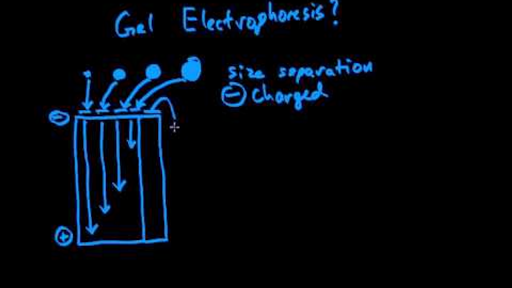 Gel Electrophoresis?
size separation
⊖ Charged
⊖
⊕